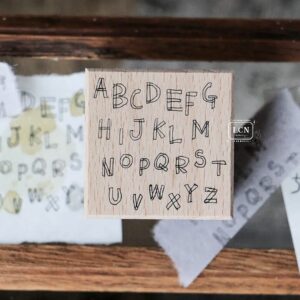 A B C D E F G
H I J K L M
N O P Q R S T
U V W X Y Z
D E F G
I J K L
O P Q R S
LCN
N O P Q R S